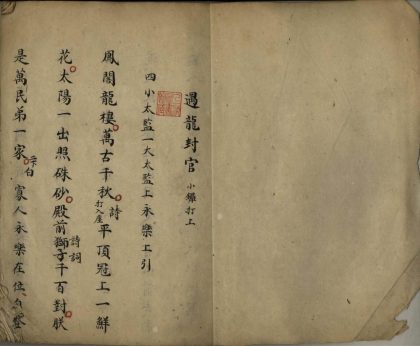 過龍封官 小鑼打上
四小太監一大太監上永樂上引
鳳閣龍樓萬古千秋詩 打入座 平頂冠上一鮮
花太陽一出照硃砂殿前獅子千百對朕
詩詞
是萬民弟一家 白 寡人永樂在位自登